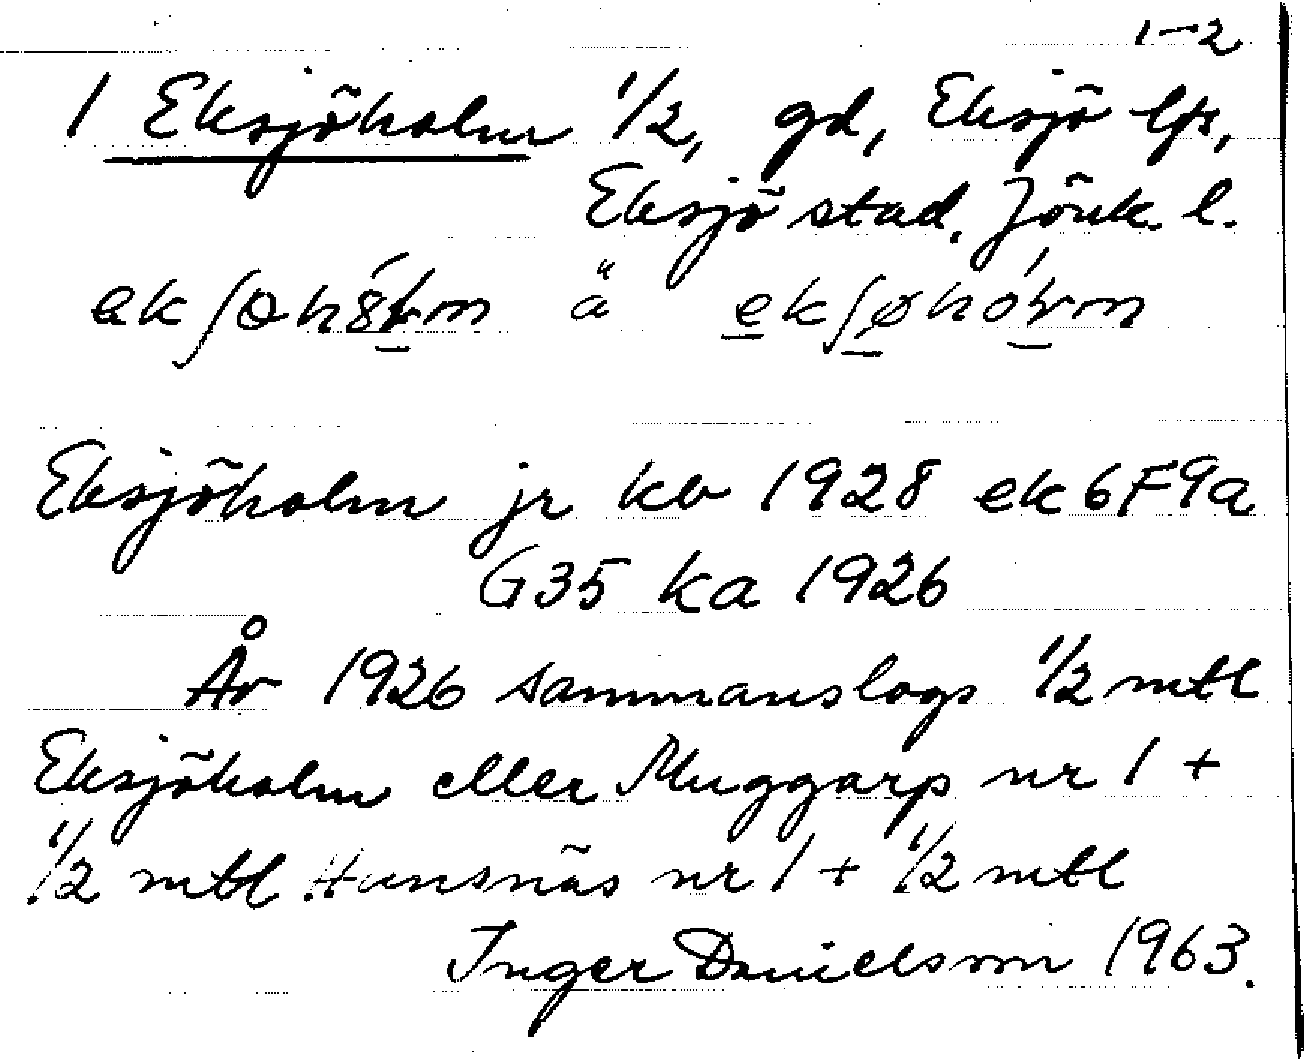 1-2
1 Eksjöholm 1/2, gd, Eksjö lfs,
Eksjö stad. Jönk. l.
ä
Eksjöholm jr kb 1928 ek 6F9a
G35 ka 1926
År 1926 sammanslogs 1/2 mtl
Eksjöholm eller Muggarp nr 1 +
1/2 mtl Hunsnäs nr 1 + 1/2 mtl
Inger Danielsson 1963.